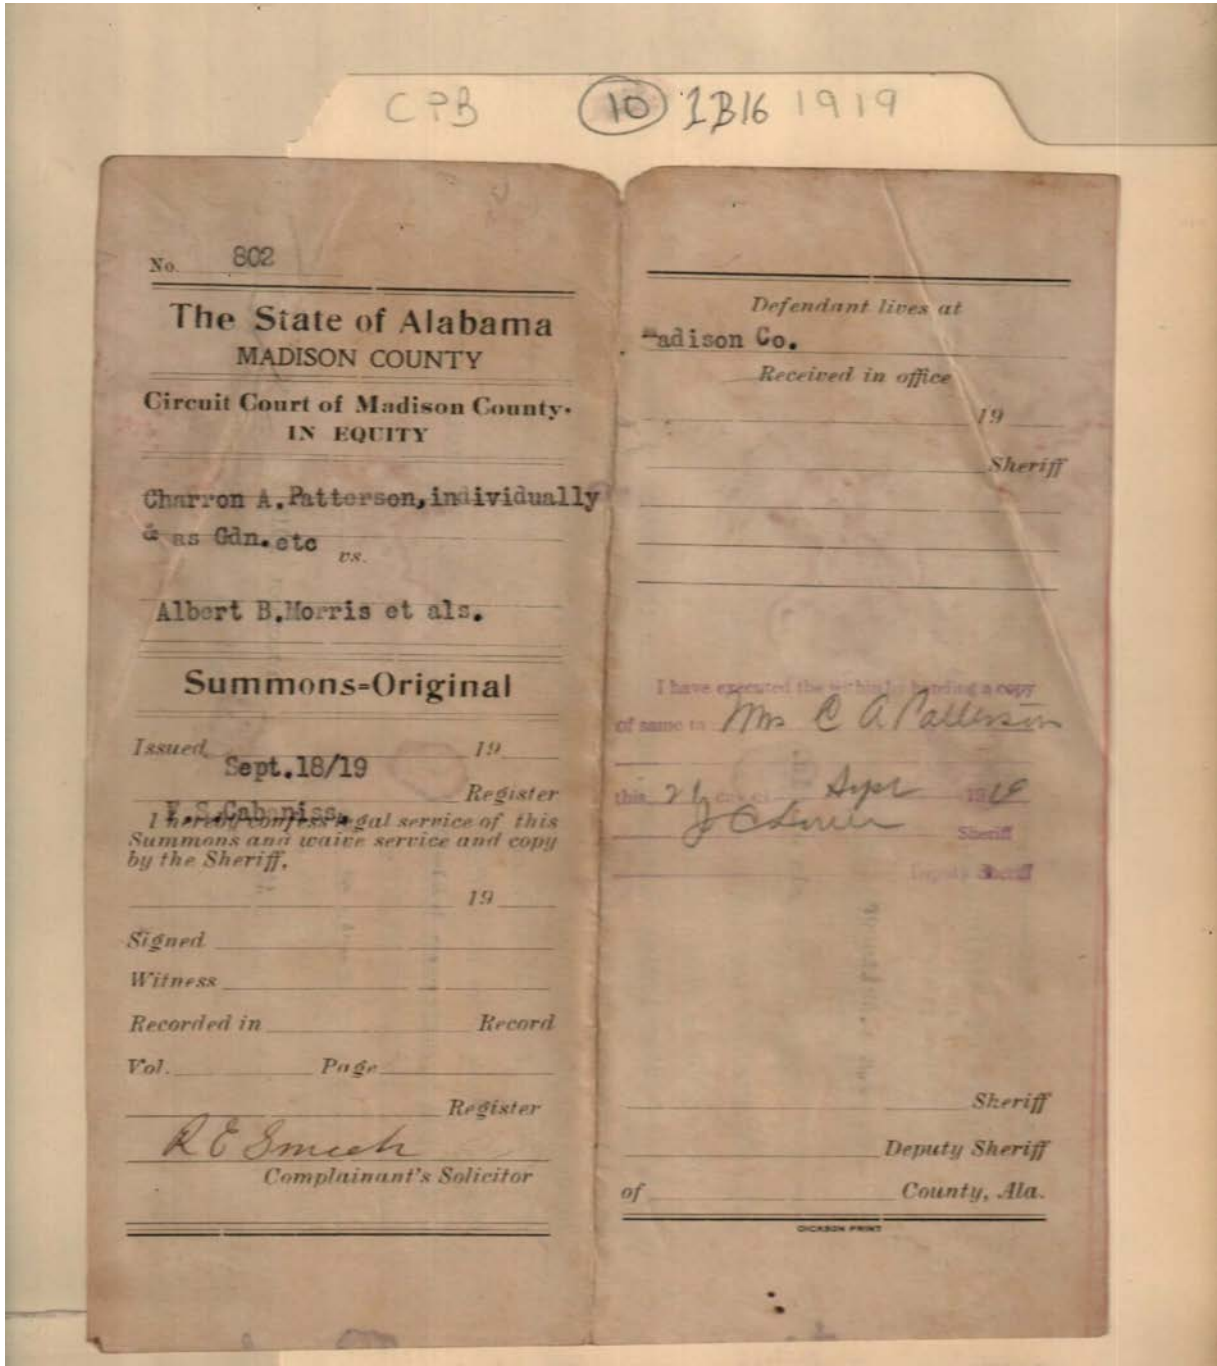 CPB 10 1B16 1919
No. 802
The State of Alabama
MADISON COUNTY
Circuit Court of Madison County.
IN EQUITY
Charron A. Patterson, individually
& as Gdn. etc
vs.
Albert B. Morris et als.
Summons=Original
Issued 19
Sept. 18/19
Register
I hereby confess legal service of this
Summons and waive service and copy
by the Sheriff.
19
Signed
Witness
Recorded in Record
Vol. Page
Register
R E Smith
Complainant's Solicitor
Defendant lives at
adison Co.
Received in office
19
Sheriff
I have executed the within by handing a copy
of same to Mrs C A Patterson
this day of Sept 1919
Sheriff
Deputy Sheriff
Sheriff
Deputy Sheriff
of County, Ala.
DICKSON PRINT